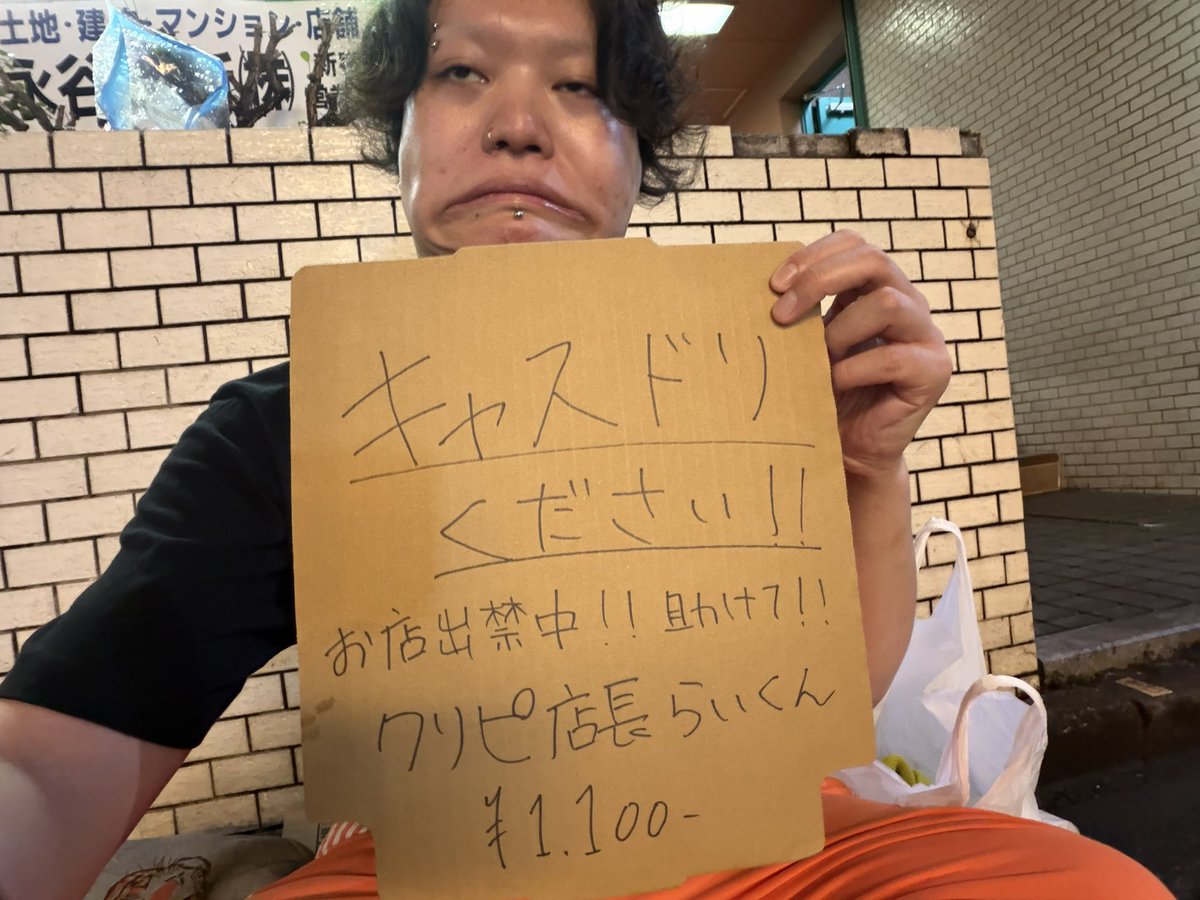 土地・建 マンション・店舗
永谷 ㈱
キャスドリ
ください!!
お店出禁中!! 助けて!!
クリピ店長らいくん
¥1.100-